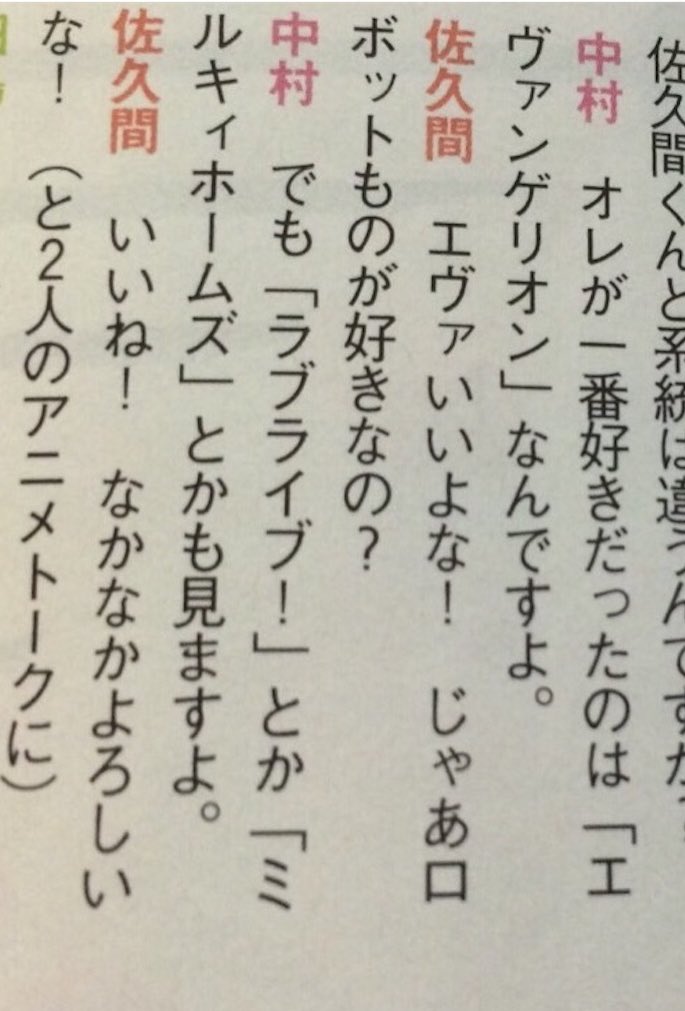 佐久間くんと系統は違うんですが
中村　オレが一番好きだったのは「エ
ヴァンゲリオン」なんですよ。
佐久間　エヴァいいよな！　じゃあロ
ボットものが好きなの？
中村　でも「ラブライブ！」とか「ミ
ルキィホームズ」とかも見ますよ。
佐久間　いいね！　なかなかよろしい
な！　（と2人のアニメトークに）